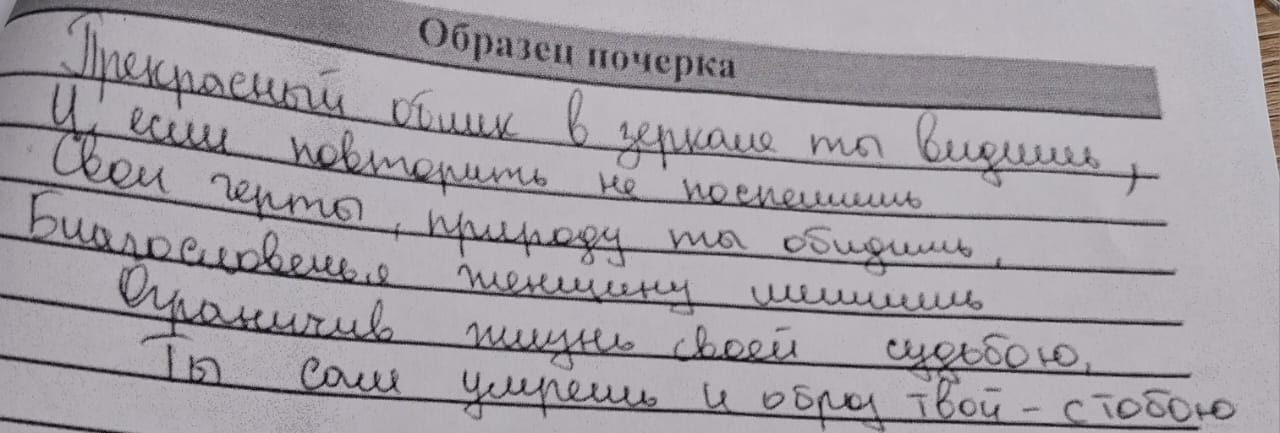 Образец почерка
Прекрасный облик в зеркале ты видишь,
И, если повторить не поспешишь
Свои черты, природу ты обидишь,
Благословенья женщину лишишь
Ограничив жизнь своей судьбою,
Ты сам умрешь и образ твой - с тобою